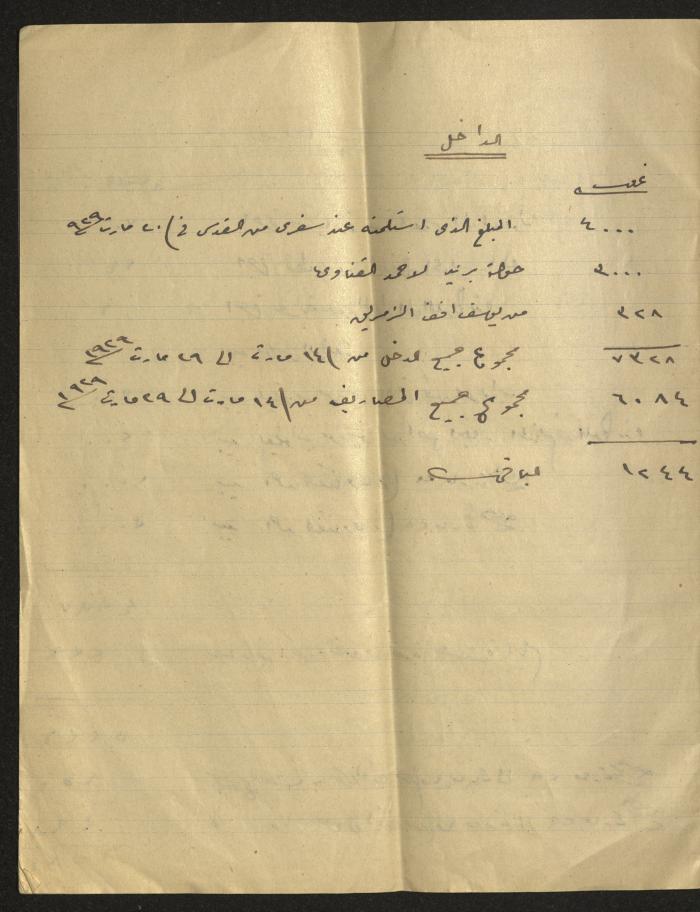 الداخل
غرش
٤٠٠٠ المبلغ الذى استلمته عند سفرى من القدس في ٢٠ مارت ٩٢٩
٣٠٠٠ حوالة بريد لاحمد القناوى
٣٢٨ من يوسف افندي
٧٣٢٨ مجموع جميع الدخل من ١٤ مارت الى ٢٩ مارت ١٩٢٩
٦٠٨٤ مجموع جميع المصاريف من ١٤ مارت الى ٢٩ مارت ١٩٢٩
١٢٤٤ الباقي